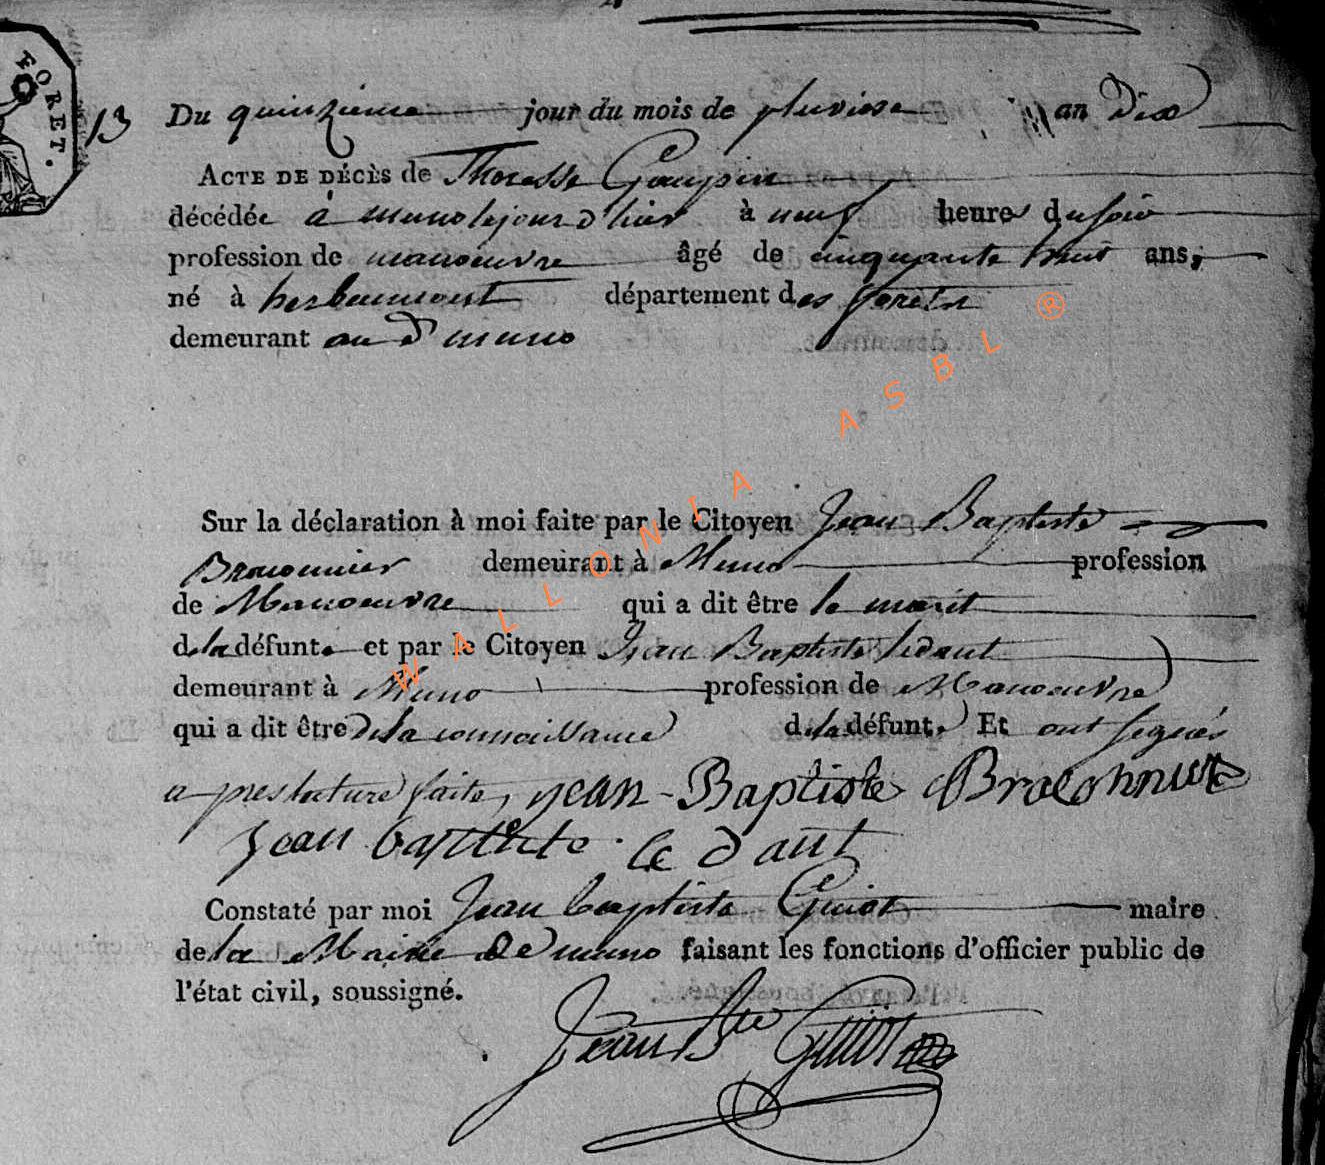 FORET.
13 Du quinzieme jour du mois de pluviose an Dix
ACTE DE DÉCÈS de Theresse Gaupin
décédée à muno le jour d'hier à neuf heures du soir
profession de manoeuvre âgé de cinquante huit ans,
né à herbeumont département des forêts
demeurant au d muno
Sur la déclaration à moi faite par le Citoyen Jean Baptiste
Braconnier demeurant à Muno profession
de Manoeuvre qui a dit être le marit
de la défunte et par le Citoyen Jean Baptiste ledant
demeurant à Muno profession de Manoeuvre
qui a dit être de la connoissance de la défunte Et ont signés
apres lecture faite, jean-Baptiste Braconnier
jean baptiste le dant
Constaté par moi Jean baptiste Guiot maire
de la Mairie de muno faisant les fonctions d'officier public de
l'état civil, soussigné.
Jean Bte Guiot
WALLONIA ASBL ®